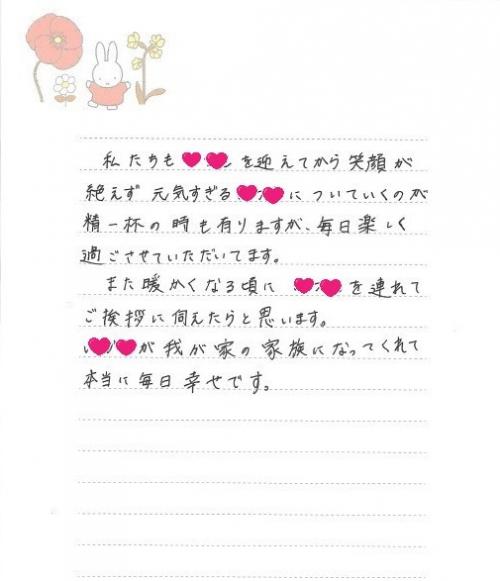 私たちも を迎えてから笑顔が
絶えず 元気すぎる についていくのが
精一杯の時も有りますが、毎日楽しく
過ごさせていただいてます。
また暖かくなる頃に を連れて
ご挨拶に伺えたらと思います。
が我が家の家族になってくれて
本当に毎日幸せです。